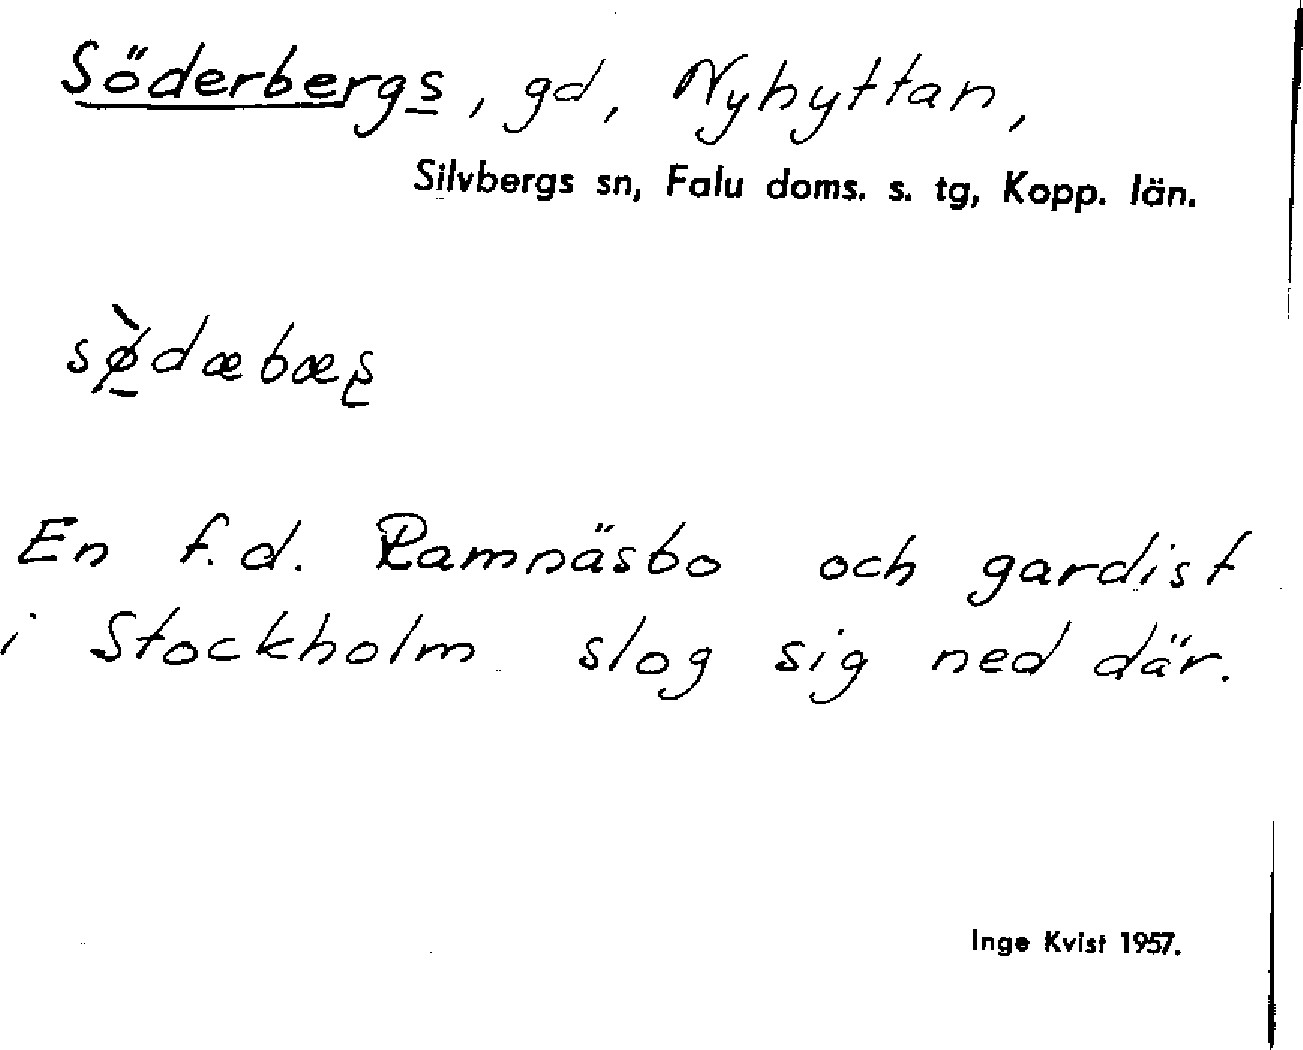 Söderbergs, gd, Nyhyttan,
Silvbergs sn, Falu doms. s. tg, Kopp. län.
sø̀dæbæş
En f.d. Ramnäsbo och gardist
i Stockholm slog sig ned där.
Inge Kvist 1957.